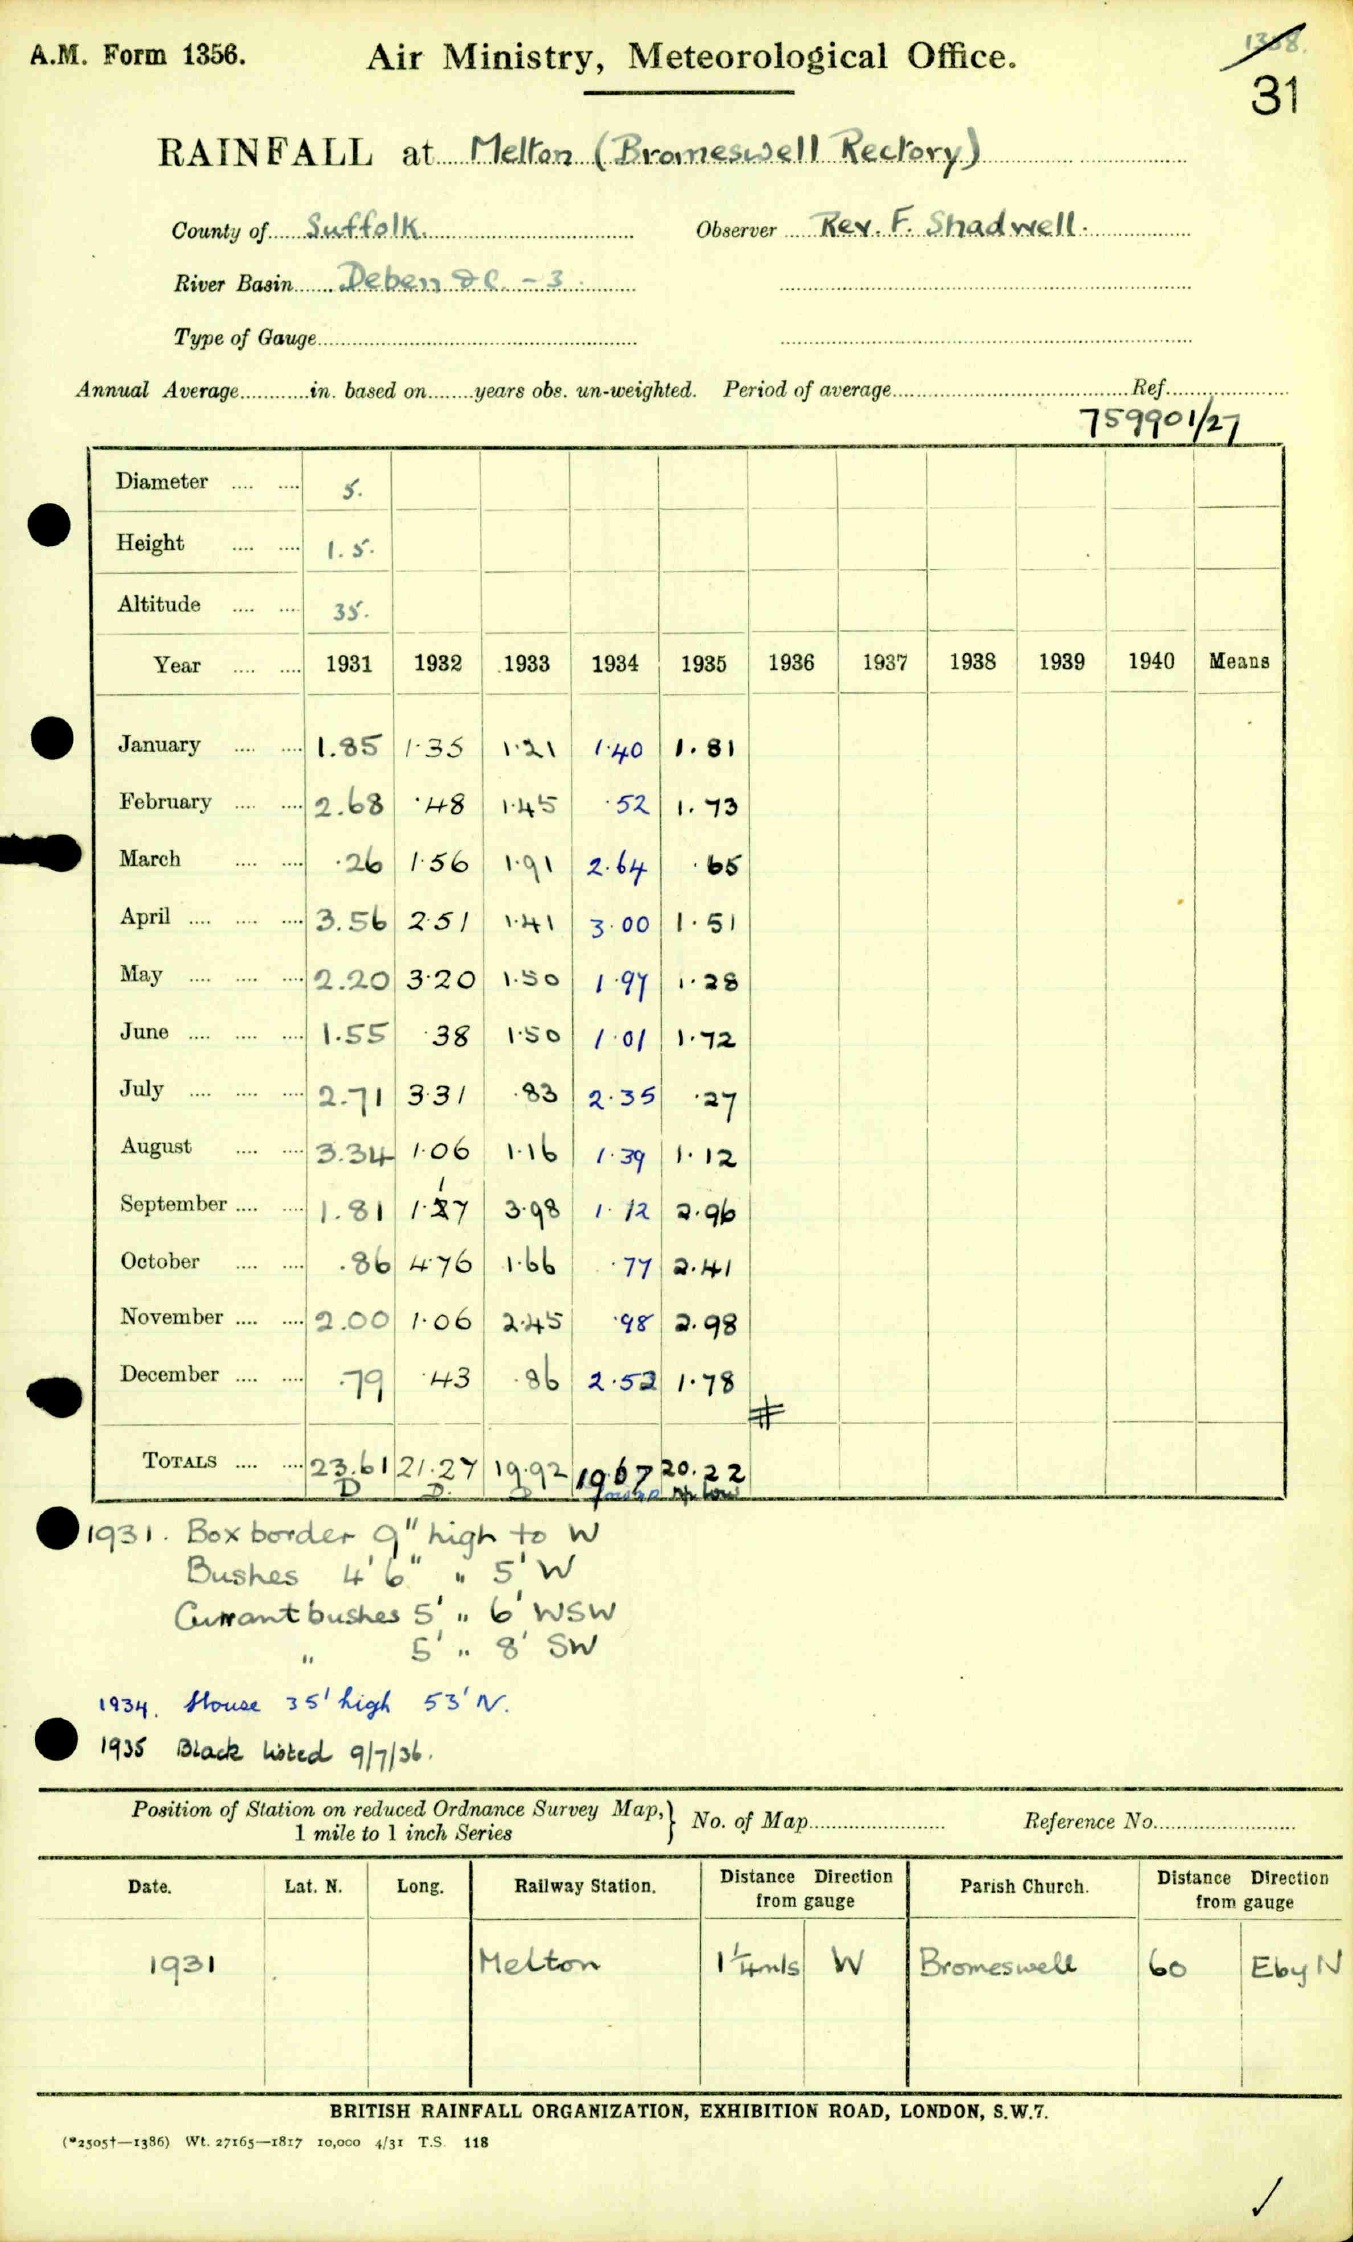 A.M. Form 1356. Air Ministry, Meteorological Office. 1358.
31
RAINFALL at Melton (Bromeswell Rectory)
County of Suffolk. Observer Rev. F. Shadwell.
River Basin Deben &c. - 3.
Type of Gauge
Annual Average in. based on years obs. un-weighted. Period of average Ref.
759901/27
Diameter 5.
Height 1.5.
Altitude 35.
Year 1931 1932 1933 1934 1935 1936 1937 1938 1939 1940 Means
January 1.85 1.35 1.21 1.40 1.81
February 2.68 .48 1.45 .52 1.73
March .26 1.56 1.91 2.64 .65
April 3.56 2.51 1.41 3.00 1.51
May 2.20 3.20 1.50 1.97 1.28
June 1.55 .38 1.50 1.01 1.72
July 2.71 3.31 .83 2.35 .27
August 3.34 1.06 1.16 1.39 1.12
September 1.81 1.17 3.98 1.12 2.96
October .86 4.76 1.66 .77 2.41
November 2.00 1.06 2.45 .98 2.98
December .79 .43 .86 2.52 1.78
#
TOTALS 23.61 21.27 19.92 19.67 20.22
D D. D low
1931. Box border 9" high to W
Bushes 4'6" " 5' W
Currant bushes 5' " 6' WSW
" 5' " 8' SW
1934. House 35' high 53' N.
1935 Black listed 9/7/36.
Position of Station on reduced Ordnance Survey Map, } No. of Map Reference No.
1 mile to 1 inch Series
Date. Lat. N. Long. Railway Station. Distance Direction from gauge Parish Church. Distance Direction from gauge
1931 Melton 1 1/4 mls W Bromeswell 60 E by N
BRITISH RAINFALL ORGANIZATION, EXHIBITION ROAD, LONDON, S.W.7.
(*2505†—1386) Wt. 27165—1817 10,000 4/31 T.S. 118